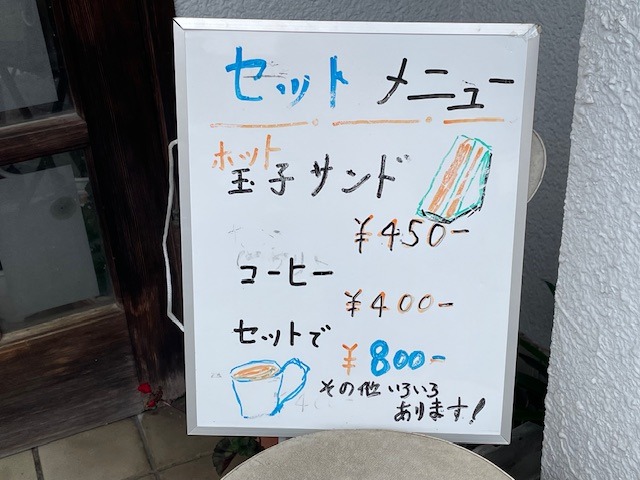 セット メニュー
ホット
玉子サンド
¥450-
コーヒー
¥400-
セットで
¥800-
その他 いろいろ
あります!